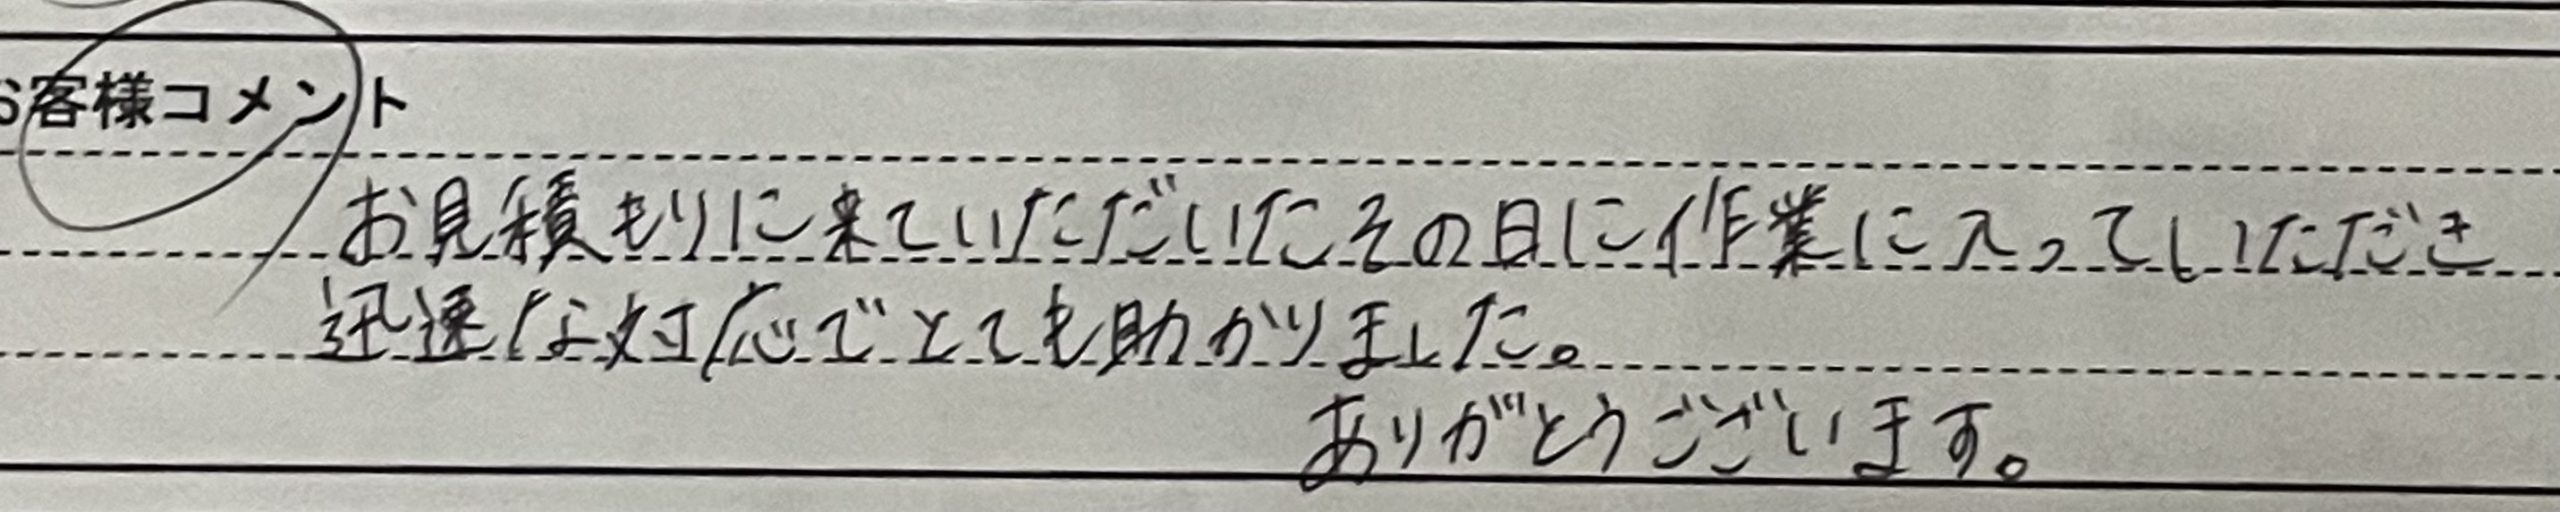 お客様コメント
お見積もりに来ていただいたその日に作業に入っていただき
迅速な対応でとても助かりました。
ありがとうございます。